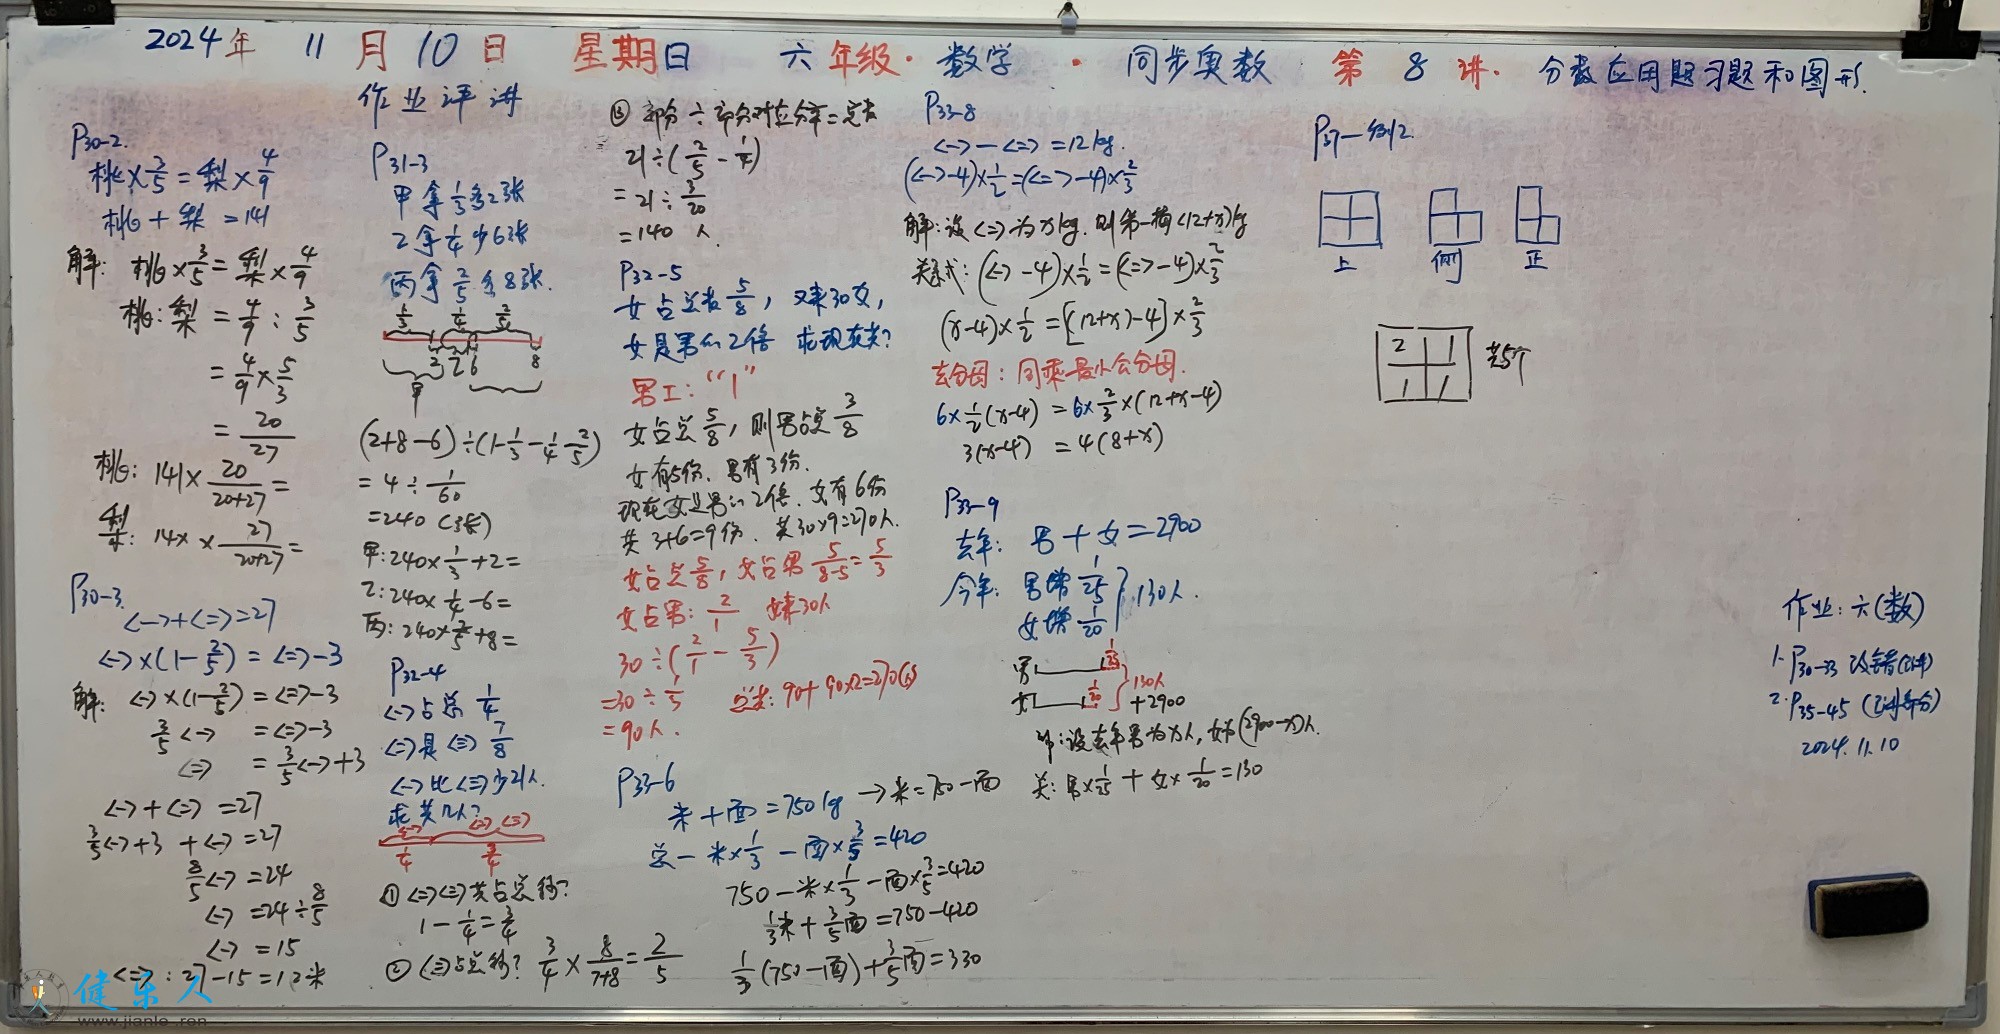 2024年 11月10日 星期日 六年级·数学·同步奥数 第8讲·分数应用题习题和图形.
作业评讲
P30-2.
桃×3/5=梨×4/9
桃+梨=141
解: 桃×3/5=梨×4/9
桃:梨=4/9:3/5
=4/9×5/3
=20/27
桃: 141×20/(20+27)=
梨: 141×27/(20+27)=
P30-3.
<一>+<二>=27
<一>×(1-2/5)=<二>-3
解: <一>×(1-2/5)=<二>-3
3/5<一>=<二>-3
<二>=3/5<一>+3
<一>+<二>=27
3/5<一>+3+<一>=27
8/5<一>=24
<一>=24÷8/5
<一>=15
<二>:27-15=12米
P31-3
甲拿1/3多2张
乙拿1/4少6张
丙拿2/5多8张.
1/3 1/4 2/5
3 2 6 8
甲
(2+8-6)÷(1-1/3-1/4-2/5)
=4÷1/60
=240(张)
甲:240×1/3+2=
乙:240×1/4-6=
丙:240×2/5+8=
P32-4
<一>占总1/4
<二>是<三>7/8
<一>比<三>少21人.
求共几人?
<一> <二> <三>
1/4 3/4
①<二><三>共占总几?
1-1/4=3/4
②<三>占总几? 3/4×8/(7+8)=2/5
③部分÷部分对应分率=总数
21÷(2/5-1/4)
=21÷3/20
=140人.
P32-5
女占总数5/8, 又来30女,
女是男的2倍 求现在共?
男工:“1”
女占总5/8, 则男占总3/8
女有5份, 男有3份.
现在女是男的2倍. 女有6份
共3+6=9份. 共30×9=270人.
女占总5/8, 女占男5/(8-5)=5/3
女占男:2/1 女来30人
30÷(2/1-5/3)
=30÷1/3
=90人. 总数:90+90×2=270(人)
P33-6
米+面=750kg →米=750-面
总-米×1/3-面×3/5=420
750-米×1/3-面×3/5=420
1/3米+3/5面=750-420
1/3(750-面)+3/5面=330
P33-8
<一>-<二>=12kg.
(<一>-4)×1/2=(<二>-4)×2/3
解:设<二>为xkg. 则第一桶(12+x)kg
关系式:(<一>-4)×1/2=(<二>-4)×2/3
(x-4)×1/2=[(12+x)-4]×2/3
去分母:同乘最小公分母.
6×1/2(x-4)=6×2/3×(12+x-4)
3(x-4)=4(8+x)
P33-9
去年: 男+女=2900
今年: 男增1/25
女增1/20 }130人.
男 1/25
女 1/20 }130人
+2900
解:设去年男为x人, 女为(2900-x)人.
关:男×1/25+女×1/20=130
P37-例2
上 侧 正
2 1
1 1
共5个
作业:六(数)
1.P30-33 改错(订)
2.P35-45 (已讲部分)
2024.11.10
健乐人
www.jianle.ren